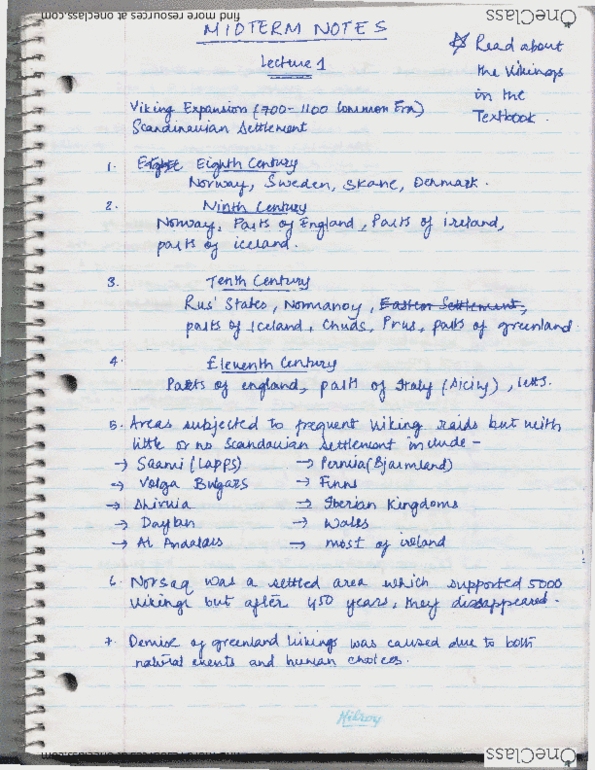 find more resources at oneclass.com
OneClass
MIDTERM NOTES
Lecture 1
☆ Read about
the Vikings
in the
Textbook.
Viking Expansion (700-1100 Common Era)
Scandinavian Settlement
1. Eighth Century
Norway, Sweden, Skane, Denmark.
2. Ninth Century
Norway, Parts of England, Parts of ireland,
parts of iceland.
3. Tenth Century
Rus' States, Normanoy, Eastern Settlement,
parts of Iceland, Chuds, Prus, parts of greenland
4. Eleventh Century
Parts of england, parts of Italy (Sicily), letts.
5. Areas subjected to frequent Viking raids but with
little or no Scandavian settlement include -
→ Saami (Lapps)
→ Permia (Bjarmland)
→ Volga Bulgars
→ Finns
→ Shirvia
→ Iberian Kingdoms
→ Daylan
→ Wales
→ Al Andalus
→ most of ireland
6. Norsaq was a settled area which supported 5000
Vikings but after 450 years, they disappeared.
7. Demise of greenland Vikings was caused due to both
natural events and human choices.
Hilroy
find more resources at oneclass.com
OneClass